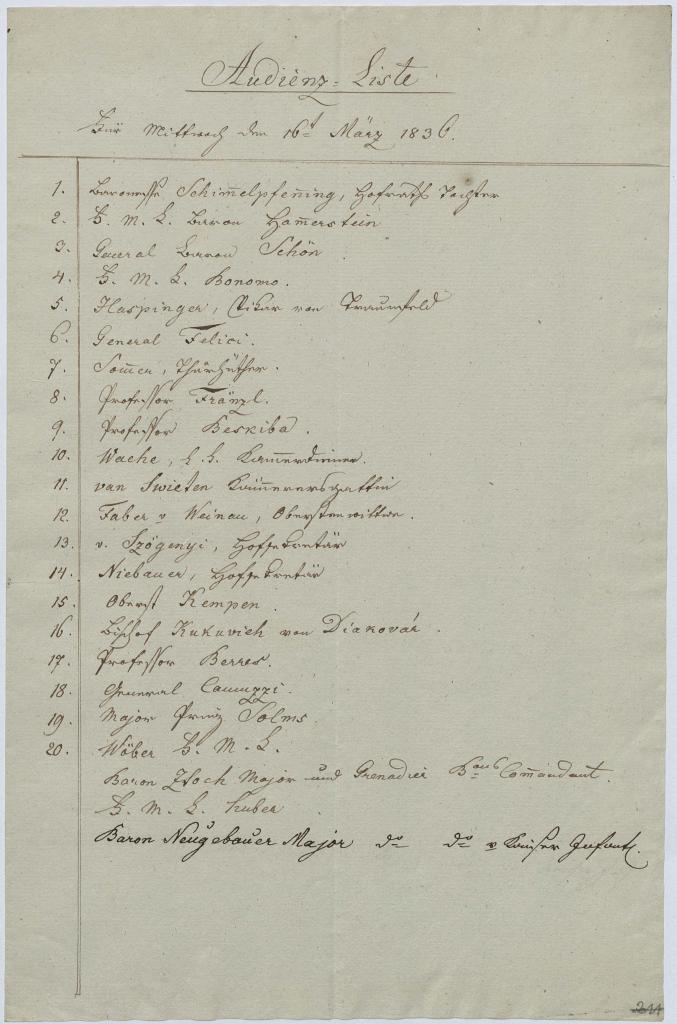 Audienz-Liste
Für Mittwoch den 16t März 1836.
1. Baronesse Schimmelpfenning, Hofraths Tochter
2. F. M. L. Baron Hammerstein
3. General Baron Schön
4. F. M. L. Bonomo.
5. Haspinger, Vikar von Traunfeld
6. General Felici.
7. Sommer, Thürhüther.
8. Professor Fränzl.
9. Professor Beskiba.
10. Wache, k. k. Kammerdiener.
11. van Swieten Kämmerersgattin
12. Faber v Weinau, Oberstenwittwe.
13. v. Szögenyi, Hofsekretär
14. Niebauer, Hofsekretär
15. Oberst Kempen
16. Bischof Kukovich von Diakovár.
17. Professor Berres.
18. General Camuzzi.
19. Major Prinz Solms.
20. Wöber F. M. L.
Baron Major und Grenadier Baons Commandant.
F. M. L. Huber
Baron Neugebauer Major do do v Kaiser Infant.